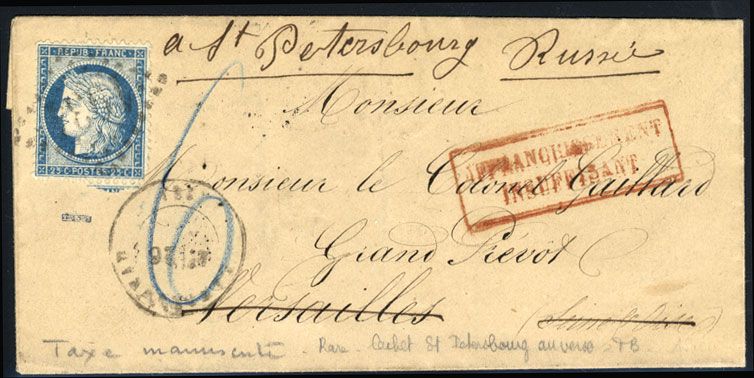 a St Petersbourg Russie
REPUB. FRANC.
25 C. POSTES 25 C.
Monsieur
AFFRANCHISSEMENT
INSUFFISANT
Monsieur le Colonel Gaillard
Grand Prévot
Versailles (Seine & Oise)
6
Taxe manuscrite - Rare - Cachet St Petersbourg au verso - TB